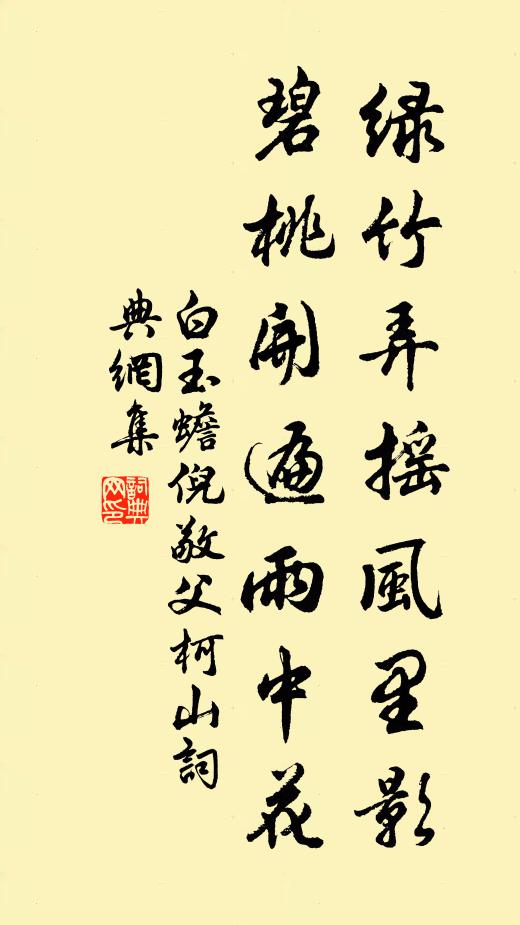 绿竹弄摇風里影
碧桃開遍雨中花
白玉蟾倪敬父柯山詞
典網集
詞典网印